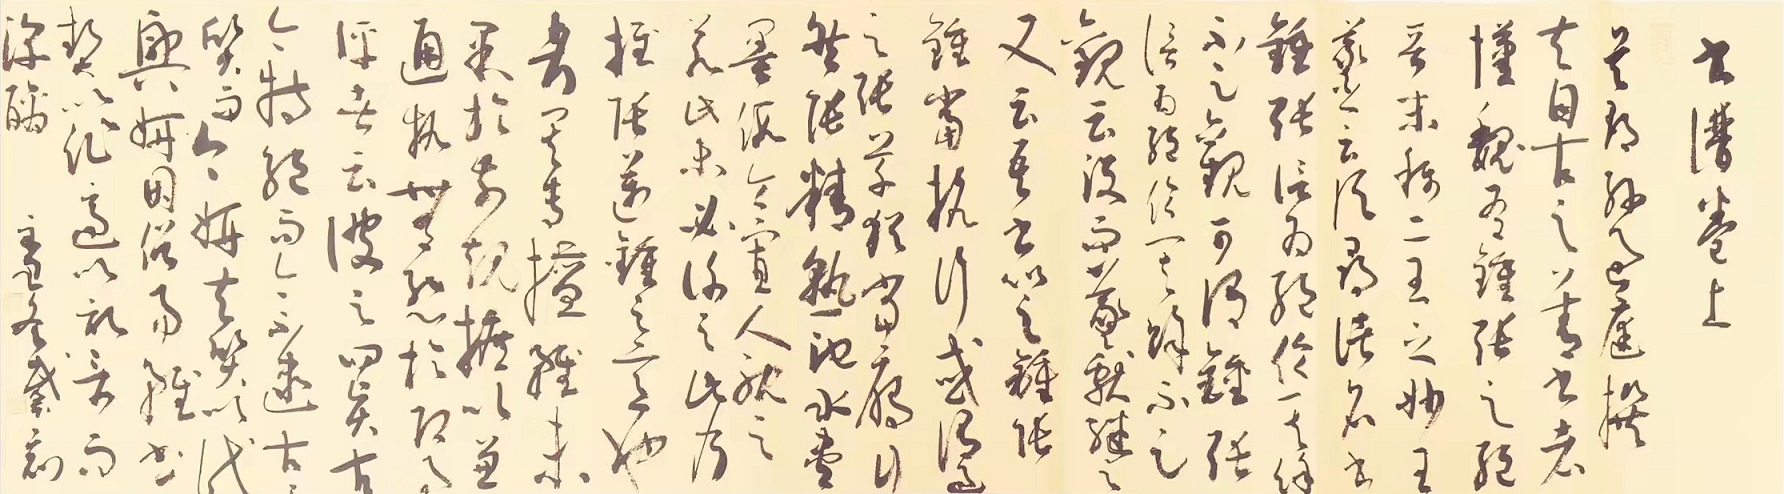 書譜卷上
吳郡孫過庭撰
夫自古之善書者
漢魏有鍾張之絕
晉末稱二王之妙王
羲之云頃尋諸名書
鍾張信為絕倫其餘
不足觀可謂鍾張
信為絕倫其餘不足
觀云沒而羲獻繼之
又云吾書比之鍾張
鍾當抗行或謂過
之張草猶當雁行
然張精熟池水盡
墨假令寡人耽之
若此未必謝之此乃
推張邁鍾之意也
考其專擅雖未
果於前規摭以兼
通故無慙於即事
評者云彼之四賢古
今特絕而今不逮古古
質而今妍夫質以代
興妍因俗易雖書
契之作適以記言而
淳醨